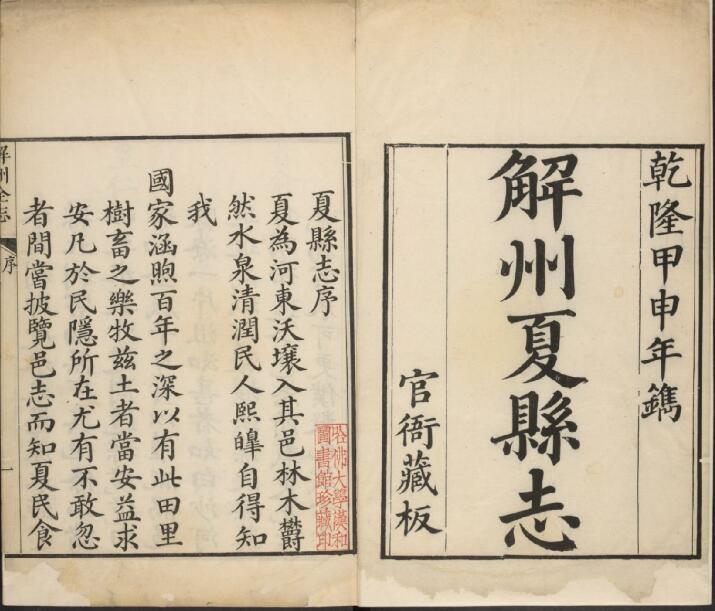 乾隆甲申年鐫
解州夏縣志
官衙藏板
夏縣志序
夏為河東沃壤入其邑林木欝
然水泉清潤民人熙皡自得知
我
國家涵煦百年之深以有此田里
樹畜之樂牧茲土者當安益求
安凡於民隱所在尤有不敢忽
者間嘗披覽邑志而知夏民食
解州全志
序
一
哈佛大學漢和
圖書館珍藏印